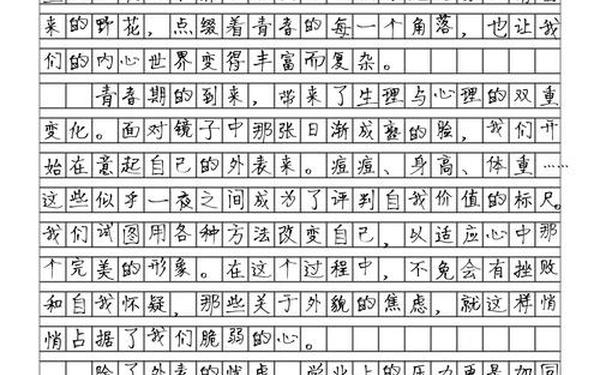 来的野花，点缀着青春的每一个角落，也让我
们的内心世界变得丰富而复杂。
青春期的到来，带来了生理与心理的双重
变化。面对镜子中那张日渐成熟的脸，我们开
始在意起自己的外表来。痘痘、身高、体重……
这些似乎一夜之间成为了评判自我价值的标尺。
我们试图用各种方法改变自己，以适应心中那
个完美的形象。在这个过程中，不免会有挫败
和自我怀疑，那些关于外貌的焦虑，就这样悄
悄占据了我们脆弱的心。
除了外表的忧虑，学业上的压力更是如同